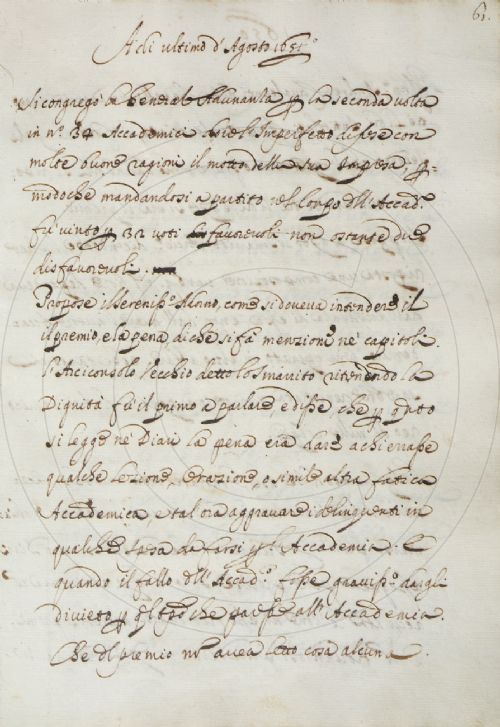 61.
Adi ultimo d'Agosto 1651
Si congregò la General Adunanza p la seconda volta
in nº 34 Accademici dove l'Imperfetto difese con
molte buone ragioni il motto della sua Impresa; p
modoche mandandosi a partito nel luogo dll'Accad.ª
fù vinto p 32 voti favorevoli non ostante due
disfavorevoli.
Propose il Serenis.º Nonno, come si doveva intendere il
il premio, e la pena di che si fà menzione ne' capitoli.
l'Arciconsolo Vecchio detto lo Smarrito ritenendo la
Dignità fù il primo a parlare, e disse che p qto
si legge ne' Diari la pena era dare a chi errasse
qualche lezione, orazione, o simile altra fatica
Accademica, e tal ora aggravare i delinquenti in
qualche spesa da farsi p l'Accademia. E
quando il fallo dll'Accad.º fosse gravis.º dargli
divieto p qlche all'Accademia.
Che dl premio nō avea letto cosa alcuna.